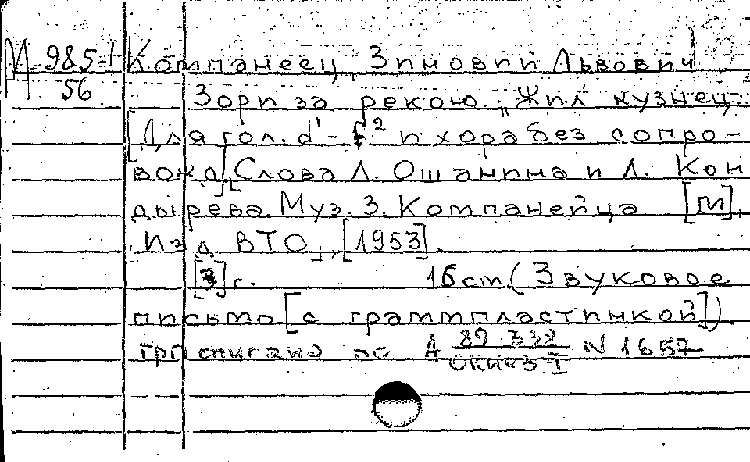 М 985-1 Компанеец, Зиновий Львович
56 Зори за рекою. "Жил кузнец.
[Для гол. d¹-f² и хора без сопро-
вожд.] Слова Л. Ошанина и Л. Кон
дырева. Муз. З. Компанейца [М],
Изд ВТО, [1953].
[3] с. 16 cm. (Звуковое
письмо [с граммпластинкой])
расписано по А N 1657